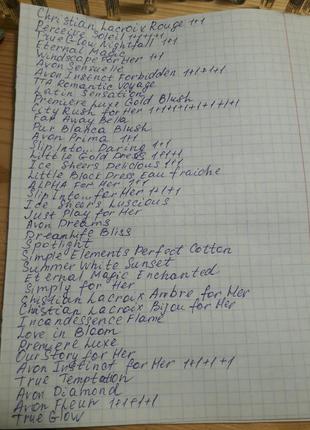 Christian Lacroix Rouge 1+1
Perceive Soleil 1+1+1+1
True Glow Nightfall 1+1
Eternal Magic
Wildscape for Her 1+1
Avon Sensuelle
Avon Instinct Forbidden 1+1+1+1
TTA Romantic Voyage
Latin Sensation
Premiere Luxe Gold Blush
City Rush for Her 1+1+1+1+1+1+1+1
Far Away Bella
Pur Blanca Blush
Avon Prima 1+1
Slip Into... Daring 1+1
Little Gold Dress 1+1+1
Ice Sheers Delicious 1+1
Little Black Dress Eau fraiche
ALPHA For Her 1+1
Slip Into... for Her 1+1+1
Ice Sheers Luscious
Just Play for Her
Avon Dreams
Dreamlife Bliss
Spotlight
Simple Elements Perfect Cotton
Summer White Sunset
Eternal Magic Enchanted
Simply for Her
Christian Lacroix Ambre for Her
Christian Lacroix Bijou for Her
Incandessence Flame
Love in Bloom
Premiere Luxe
Our Story for Her
Avon Instinct for Her 1+1+1+1
True Temptation
Avon Diamond
Avon Fleur 1+1+1+1
True Glow